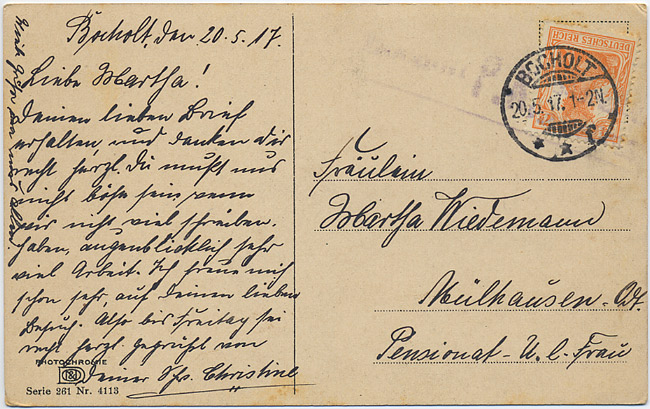 Bocholt, den 20.5.17.
Liebe Martha!
Deinen lieben Brief
erhalten, und danken Dir
recht herzl. Du mußt uns
nicht böse sein wenn
wir nicht viel schreiben.
Haben, augenblicklich sehr
viel Arbeit. Ich freue mich
schon sehr, auf deinen lieben
Besuch. Also bis Freitag sei
recht herzl. gegrüßt von
Deiner Christine
PHOTOCHROMIE
Serie 261 Nr. 4113
DEUTSCHES REICH
BOCHOLT
20.5.17.1-2N.
Fräulein
Martha Wiedemann
Mülhausen
Pensionat U. l. Frau